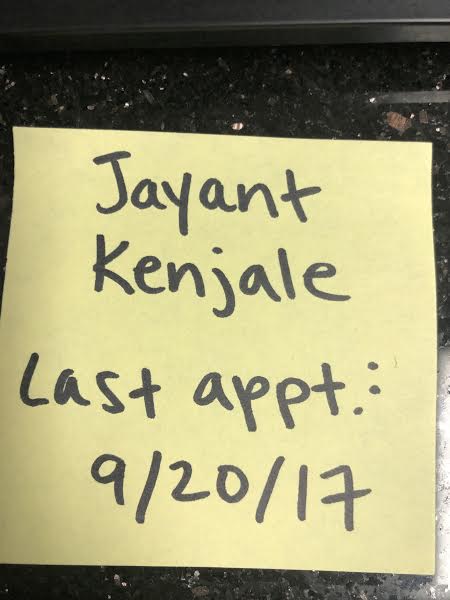 Jayant
Kenjale
Last appt.:
9/20/17